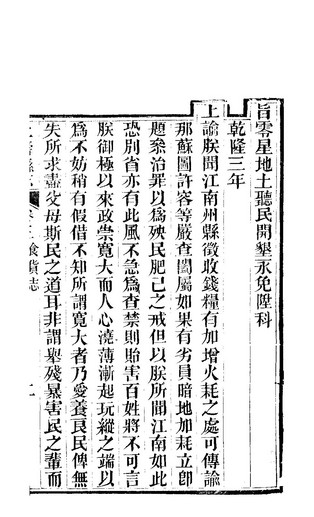 旨零星地土聽民開墾永免陞科
乾隆三年
上諭朕聞江南州縣徵收錢糧有加增火耗之處可傳諭
那蘇圖許容等嚴查闔屬如果有劣員暗地加耗立卽
題叅治罪以為殃民肥己之戒但以朕所聞江南如此
恐别省亦有此風不急為查禁則貽害百姓將不可言
朕御極以來政崇寬大而人心澆薄漸起玩縱之端以
為不妨稍有假借不知所謂寬大者乃愛養良民俾無
失所求盡父母斯民之道耳非謂舉殘暴害民之輩而
食貨志